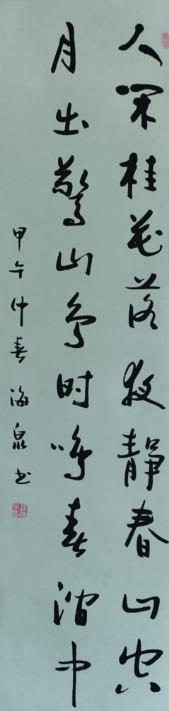 人闲桂花落夜静春山空
月出惊山鸟时鸣春涧中
甲午仲春海泉书